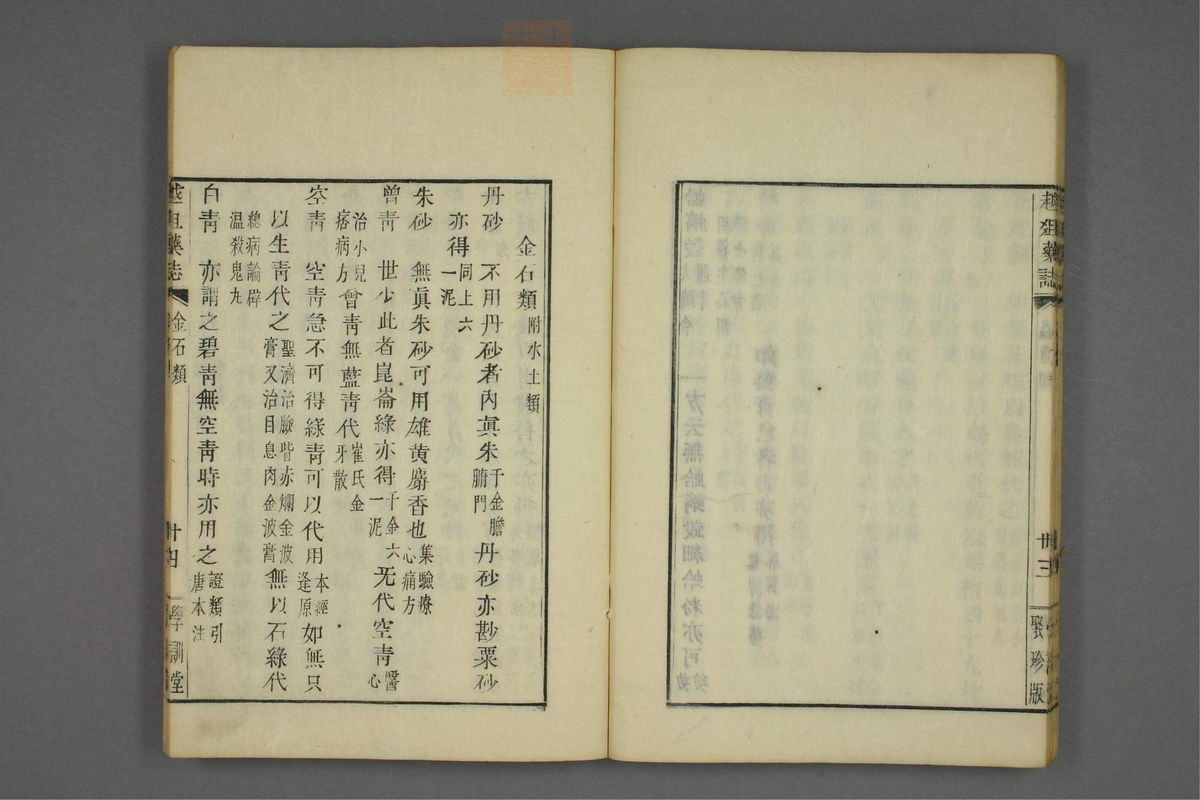 金石類附水土類
丹砂　不用丹砂者內真朱千金膽腑門丹砂亦尠粟砂
亦得同上六一泥
朱砂　無眞朱砂可用雄黄麝香也集驗療心痛方
曾靑　世少此者崑崙綠亦得千金六一泥无代空靑醫心
治小兒痞病方曾靑無藍靑代崔氏金牙散
空靑　空靑急不可得綠靑可以代用本經逢原如無只
以生靑代之聖濟治臉眥赤爛金波膏又治目息肉金波膏無以石綠代
總病論辟温殺鬼丸
白靑　亦謂之碧靑無空靑時亦用之證類引唐本注
藥誌
金石類
廿四
學訓堂
狙藥誌
廿三
聚珍版